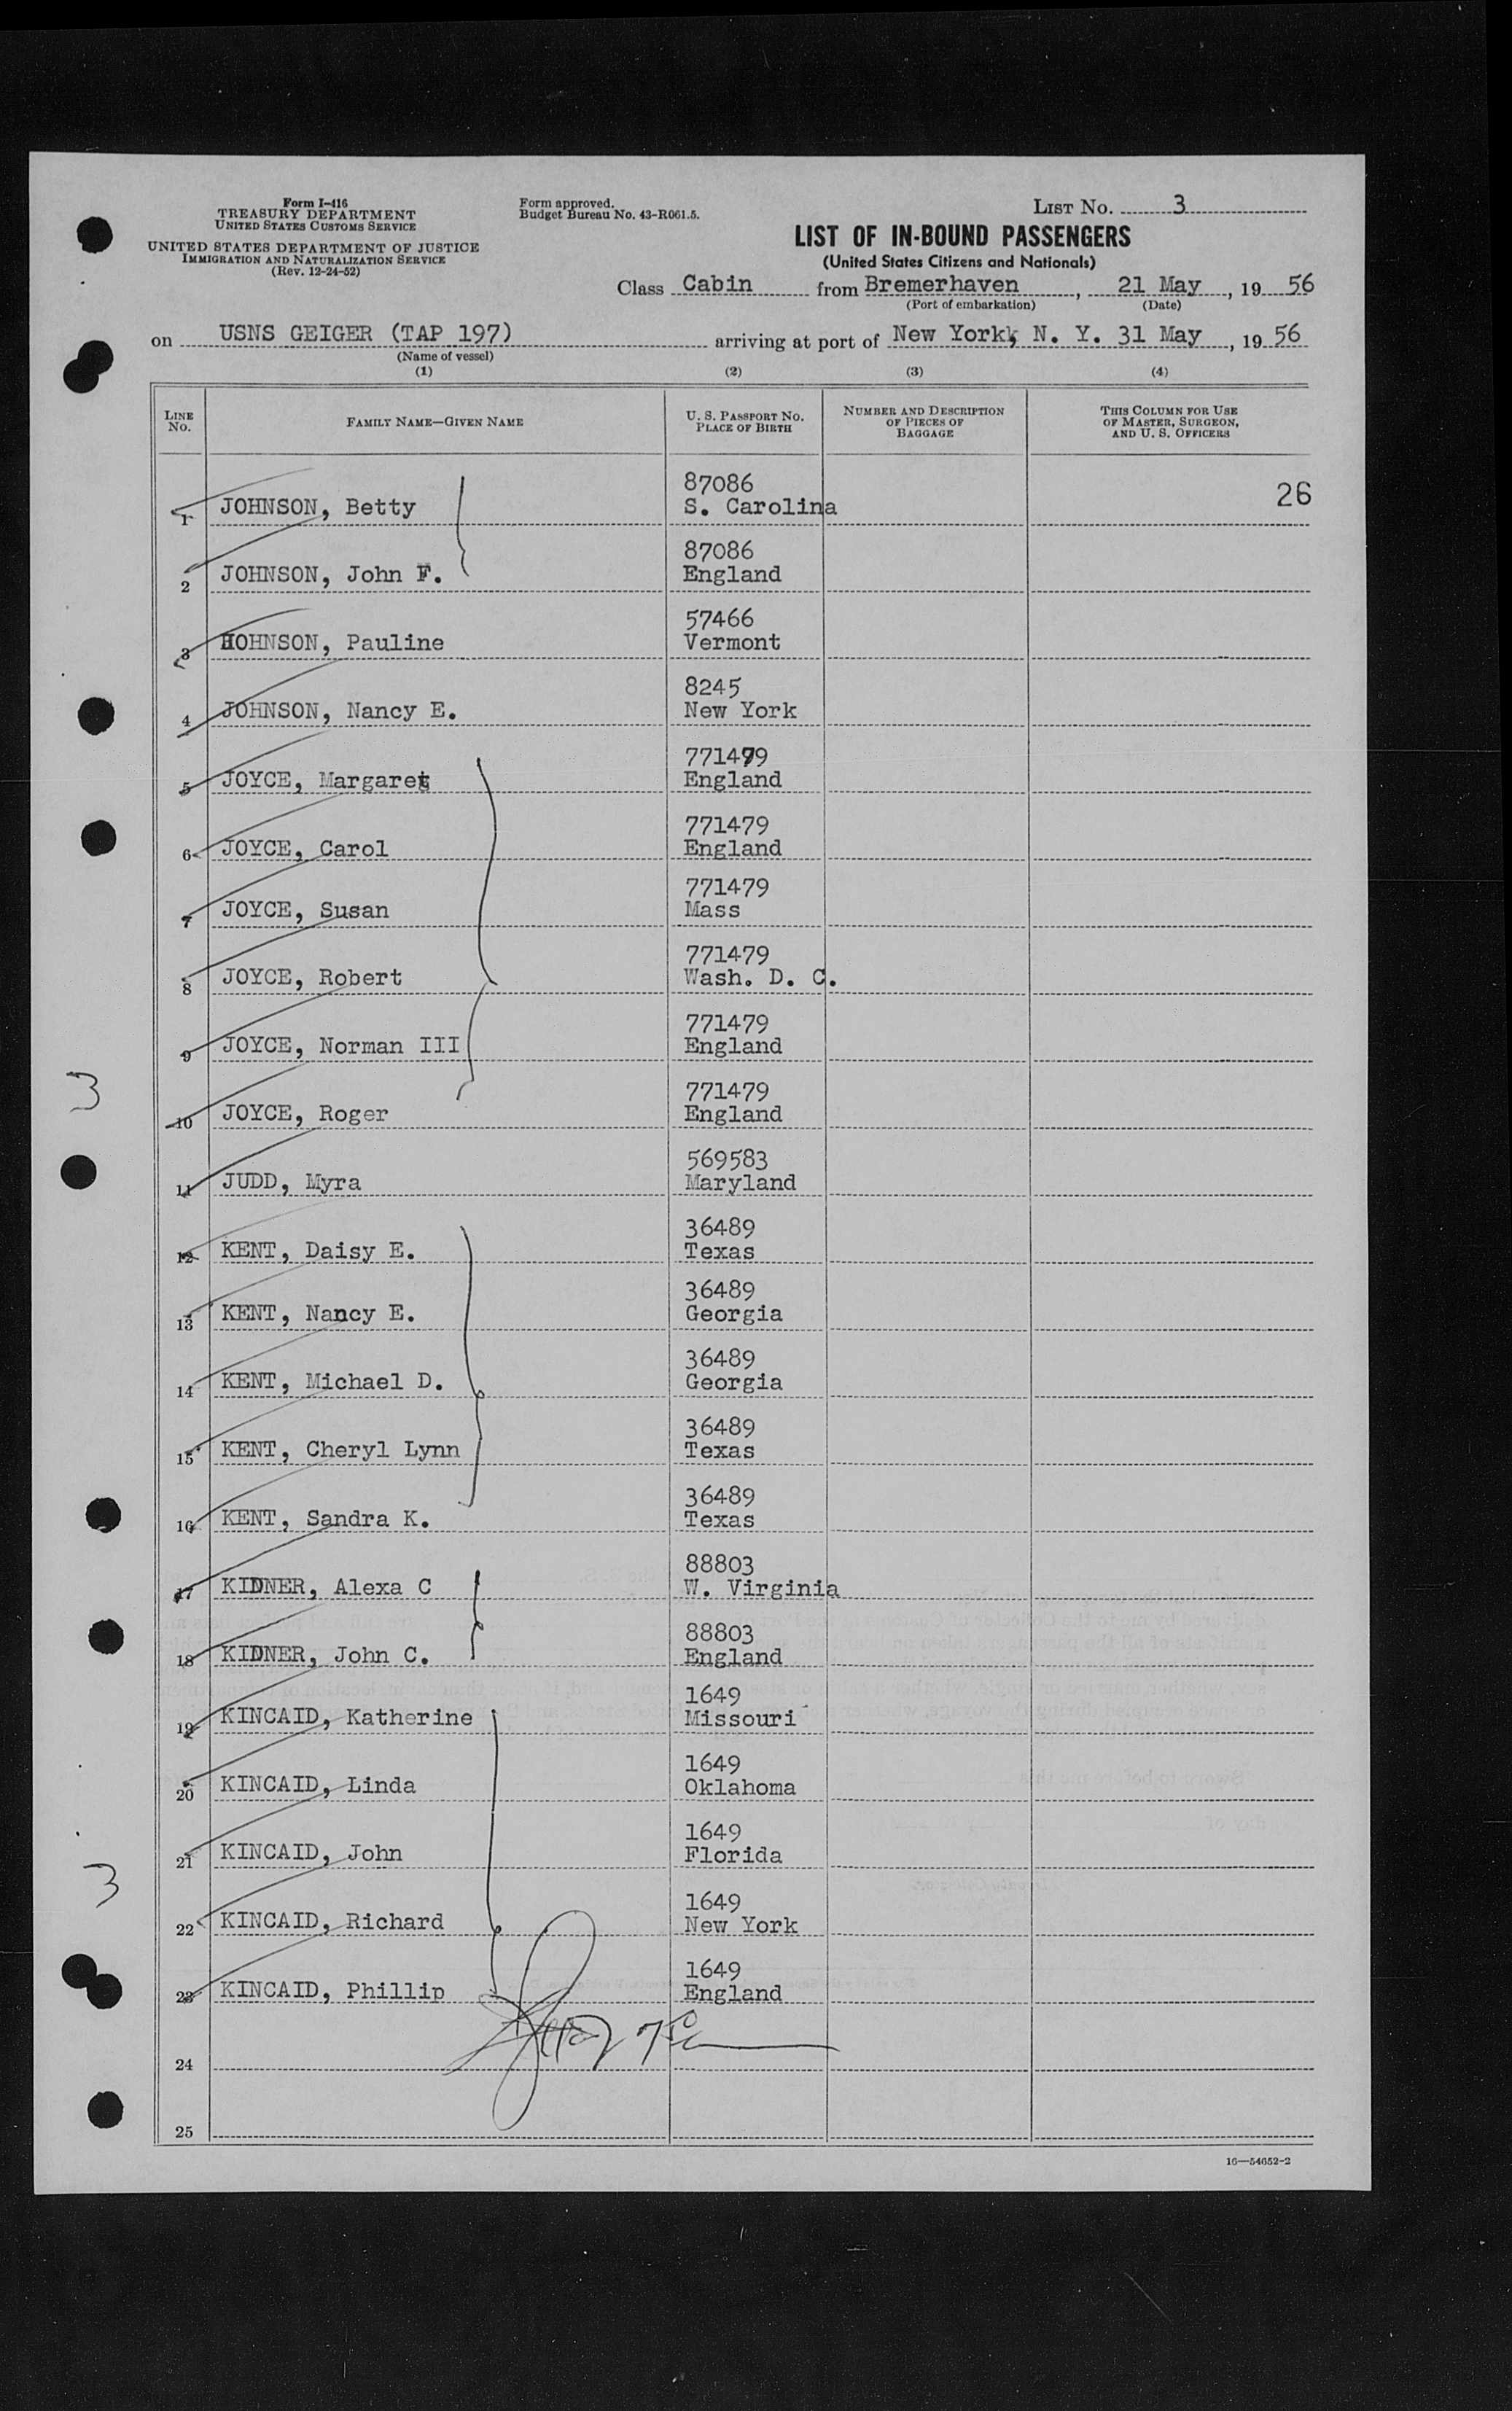 Form I-416
TREASURY DEPARTMENT
UNITED STATES CUSTOMS SERVICE
UNITED STATES DEPARTMENT OF JUSTICE
IMMIGRATION AND NATURALIZATION SERVICE
(Rev. 12-24-52)
Form approved.
Budget Bureau No. 43-R061.5.
LIST NO. 3
LIST OF IN-BOUND PASSENGERS
(United States Citizens and Nationals)
Class Cabin from Bremerhaven, 21 May, 19 56
(Port of embarkation) (Date)
on USNS GEIGER (TAP 197) arriving at port of New York, N. Y. 31 May, 19 56
(Name of vessel)
(1) (2) (3) (4)
LINE NO. FAMILY NAME—GIVEN NAME U. S. PASSPORT NO. PLACE OF BIRTH NUMBER AND DESCRIPTION OF PIECES OF BAGGAGE THIS COLUMN FOR USE OF MASTER, SURGEON, AND U. S. OFFICERS
87086 26
1 JOHNSON, Betty S. Carolina
87086
2 JOHNSON, John F. England
57466
3 HOHNSON, Pauline Vermont
8245
4 JOHNSON, Nancy E. New York
771479
5 JOYCE, Margaret England
771479
6 JOYCE, Carol England
771479
7 JOYCE, Susan Mass
771479
8 JOYCE, Robert Wash. D. C.
771479
9 JOYCE, Norman III England
3
771479
10 JOYCE, Roger England
569583
11 JUDD, Myra Maryland
36489
12 KENT, Daisy E. Texas
36489
13 KENT, Nancy E. Georgia
36489
14 KENT, Michael D. Georgia
36489
15 KENT, Cheryl Lynn Texas
36489
16 KENT, Sandra K. Texas
88803
17 KIDNER, Alexa C W. Virginia
88803
18 KIDNER, John C. England
1649
19 KINCAID, Katherine Missouri
1649
20 KINCAID, Linda Oklahoma
1649
21 KINCAID, John Florida
3
1649
22 KINCAID, Richard New York
1649
23 KINCAID, Phillip England
24
25
16—54652-2